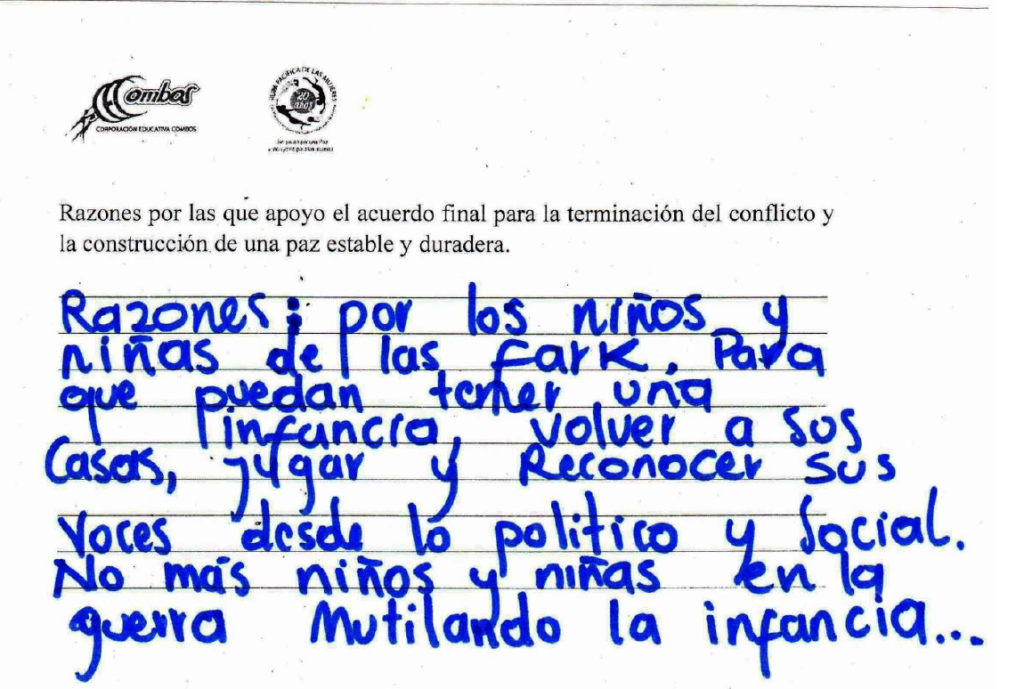 Combos
CORPORACIÓN EDUCATIVA COMBOS
RUTA PACÍFICA DE LAS MUJERES
20
años
Razones por las que apoyo el acuerdo final para la terminación del conflicto y
la construcción de una paz estable y duradera.
Razones; por los niños y
niñas de las fark. Para
que puedan tener una
infancia, volver a sus
Casas, jugar y Reconocer sus
voces desde lo politico y Social.
No más niños y niñas en la
guerra Mutilando la infancia...